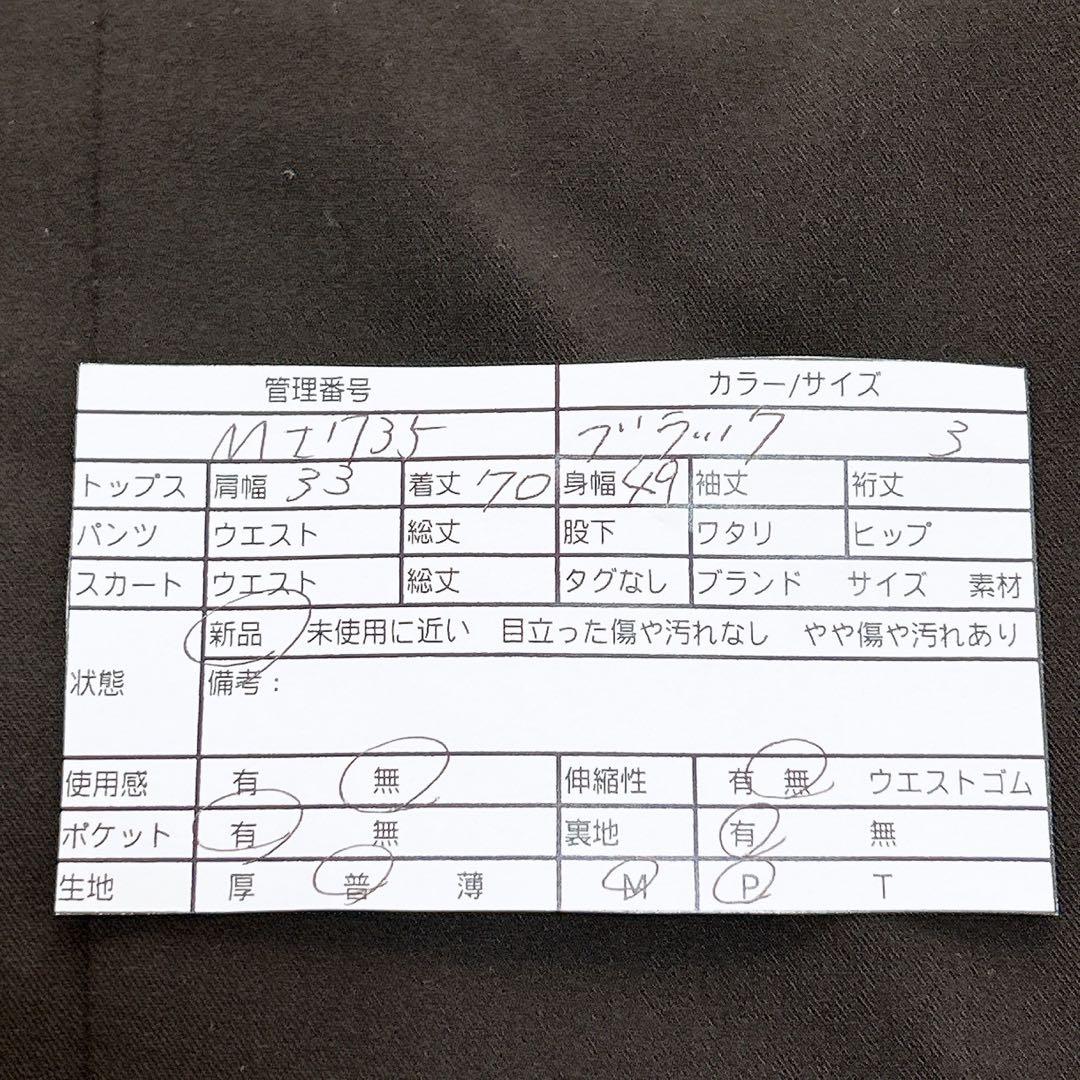 管理番号 カラー/サイズ
MI1735 ブラック 3
トップス 肩幅 33 着丈 70 身幅 49 袖丈 裄丈
パンツ ウエスト 総丈 股下 ワタリ ヒップ
スカート ウエスト 総丈 タグなし ブランド サイズ 素材
状態 新品 未使用に近い 目立った傷や汚れなし やや傷や汚れあり
備考：
使用感 有 無 伸縮性 有 無 ウエストゴム
ポケット 有 無 裏地 有 無
生地 厚 普 薄 M P T